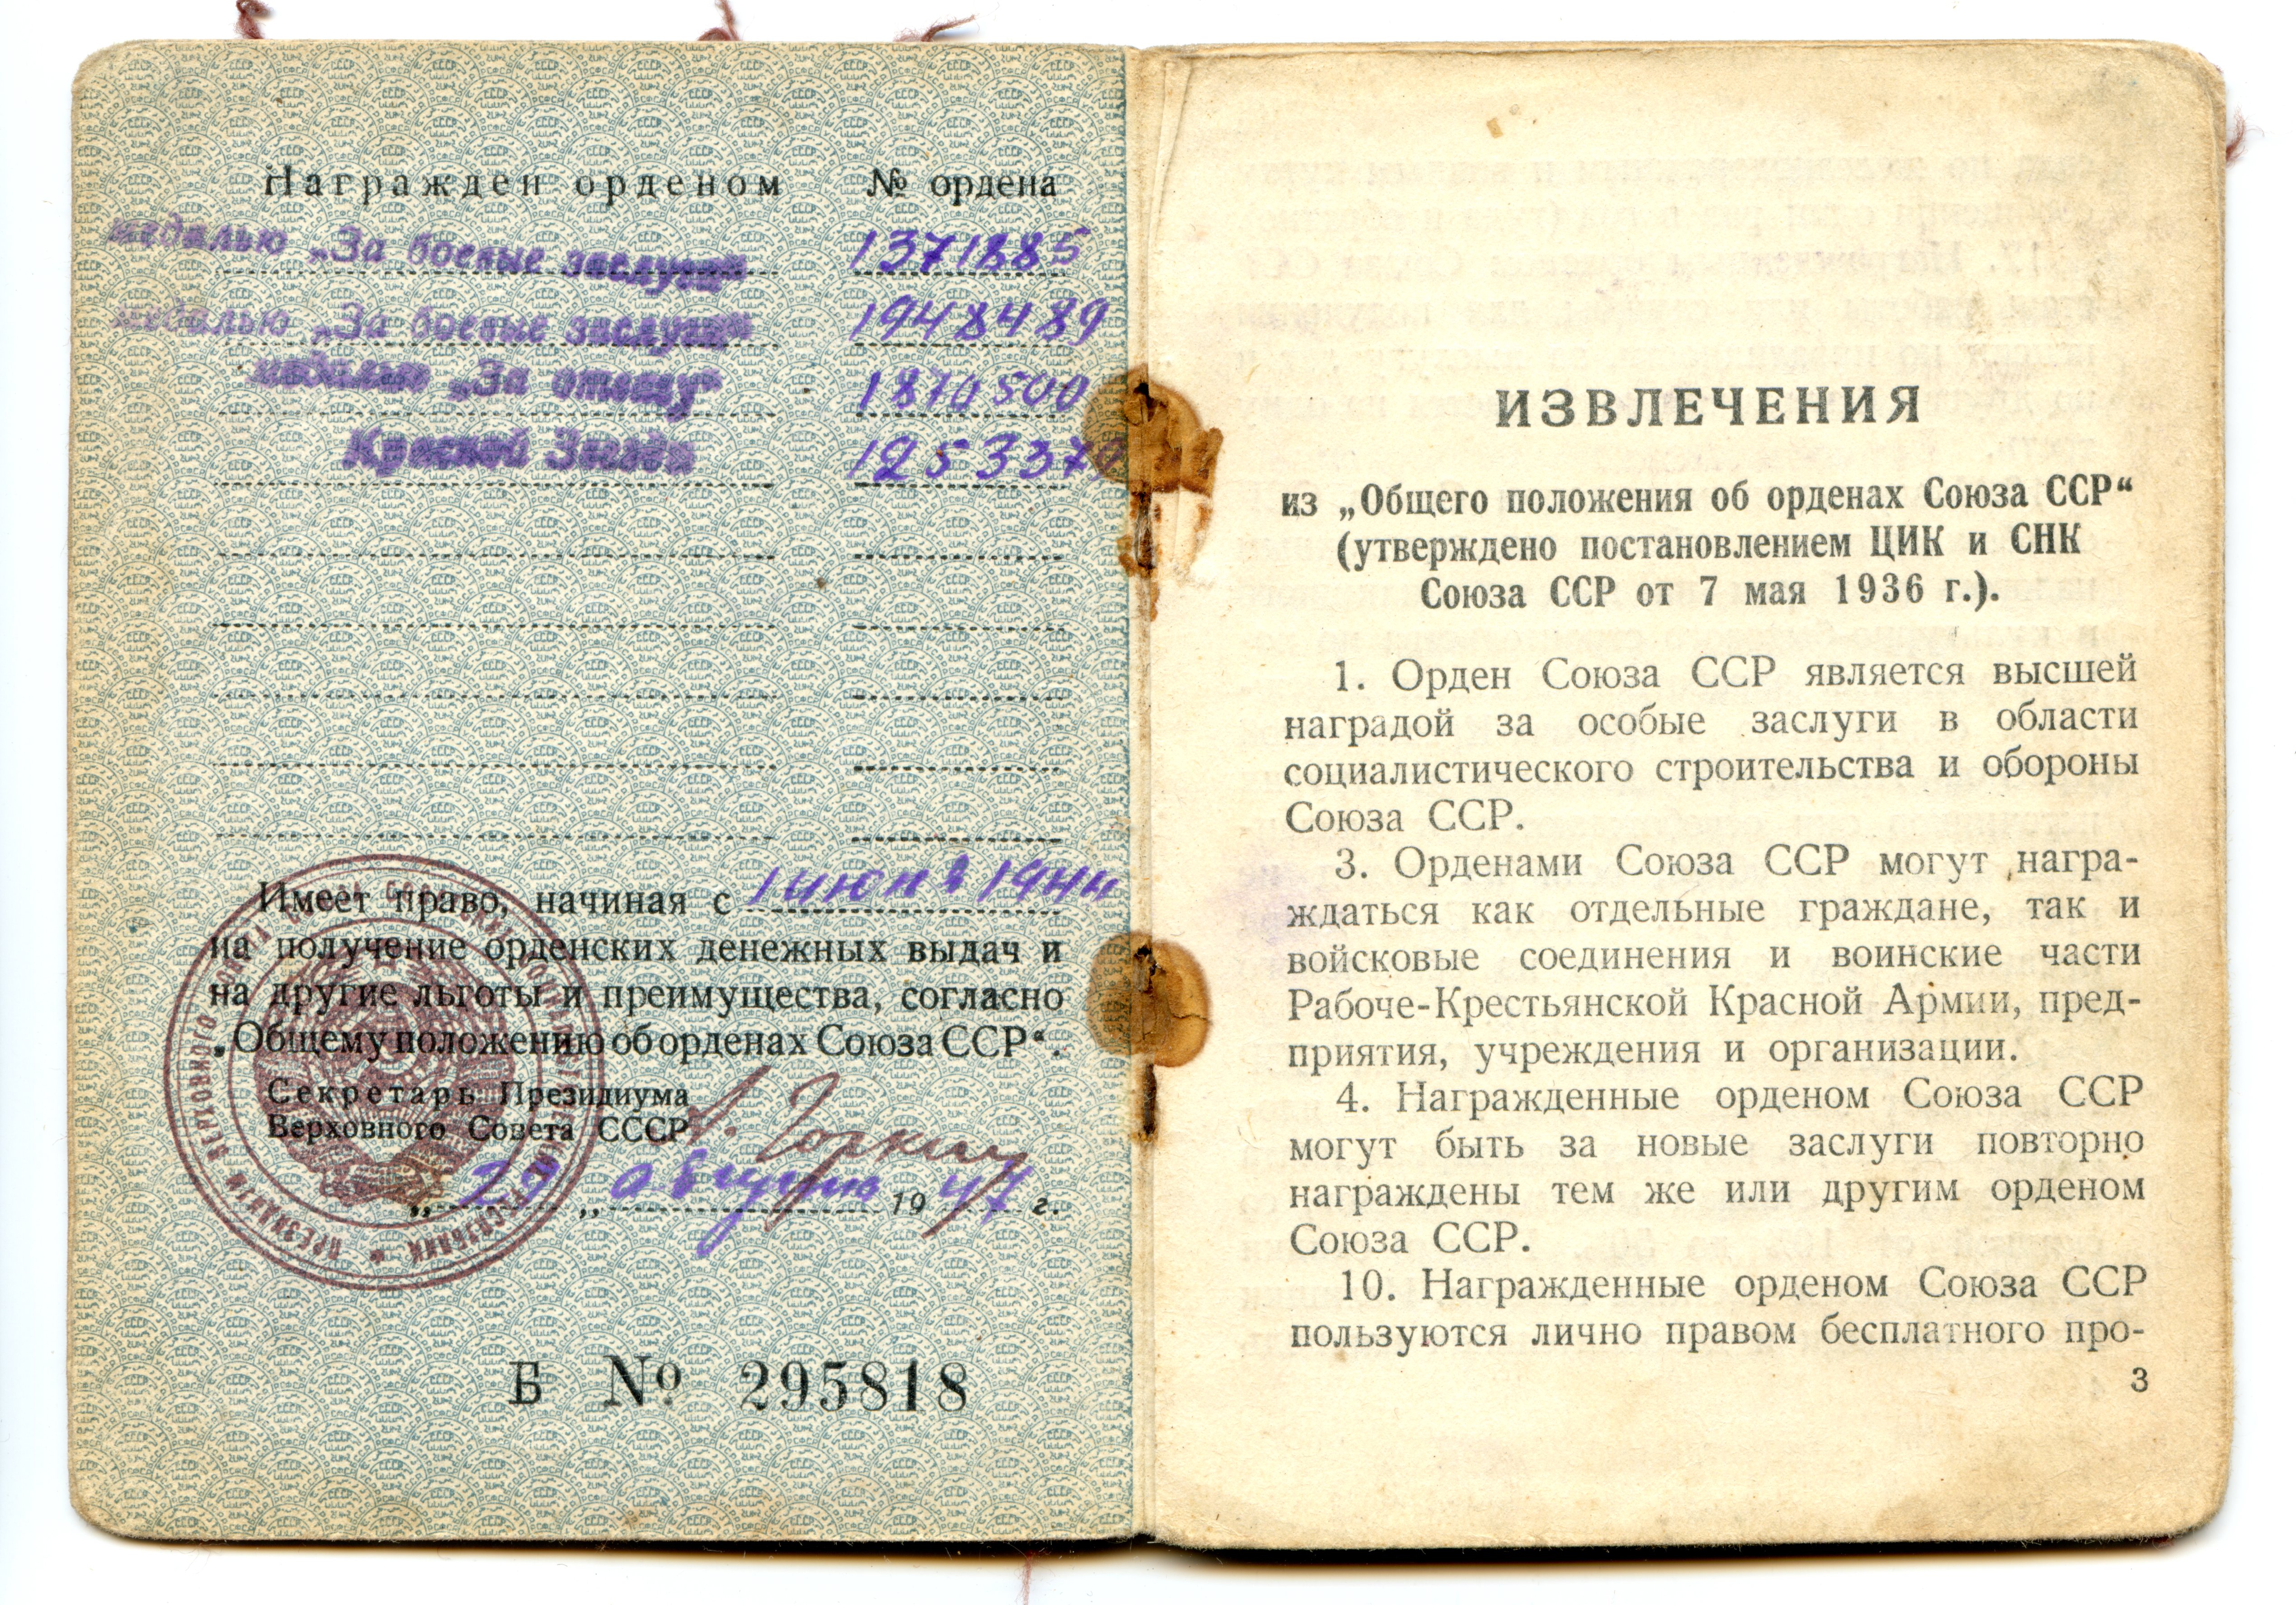 Награжден орденом № ордена
медалью „За боевые заслуги 1371885
медалью „За боевые заслуги 1948489
медалью „За отвагу“ 1870500
Красной Звезды 1253370
Имеет право, начиная с 1 июня 1944
на получение орденских денежных выдач и
на другие льготы и преимущества, согласно
„Общему положению об орденах Союза ССР“.
Секретарь Президиума
Верховного Совета СССР А. Горкин
„29„ августа 1947 г.
Б № 295818
ИЗВЛЕЧЕНИЯ
из „Общего положения об орденах Союза ССР“
(утверждено постановлением ЦИК и СНК
Союза ССР от 7 мая 1936 г.).
1. Орден Союза ССР является высшей
наградой за особые заслуги в области
социалистического строительства и обороны
Союза ССР.
3. Орденами Союза ССР могут награ-
ждаться как отдельные граждане, так и
войсковые соединения и воинские части
Рабоче-Крестьянской Красной Армии, пред-
приятия, учреждения и организации.
4. Награжденные орденом Союза ССР
могут быть за новые заслуги повторно
награждены тем же или другим орденом
Союза ССР.
10. Награжденные орденом Союза ССР
пользуются лично правом бесплатного про-
3